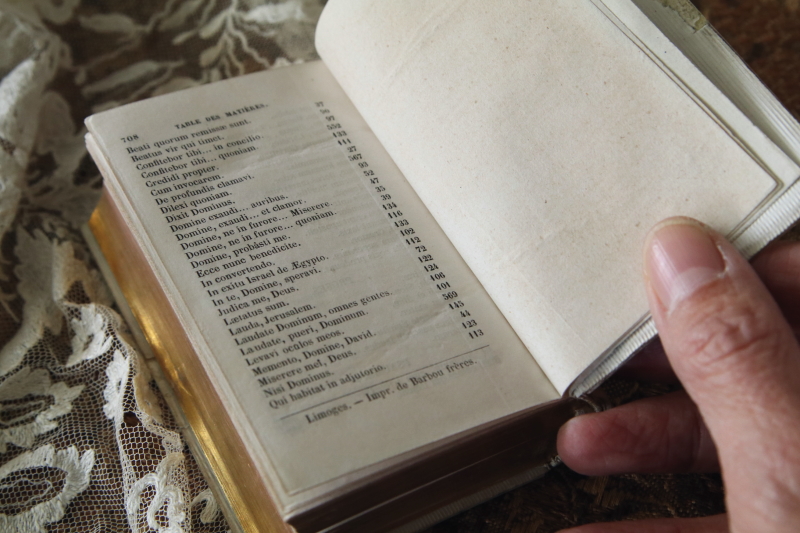 708 TABLE DES MATIÈRES.
Beati quorum remissæ sunt. 37
Beatus vir qui timet. 96
Confitebor tibi... in concilio. 97
Confitebor tibi... quoniam. 552
Credidi propter. 133
Cum invocarem. 141
De profundis clamavi. 27
Dilexi quoniam. 567
Dixit Dominus. 93
Domine exaudi... auribus. 52
Domine, exaudi... et clamor. 47
Domine, ne in furore... Miserere. 35
Domine, ne in furore... quoniam. 39
Domine, probâsti me. 134
Ecce nunc benedicite. 116
In convertendo. 133
In exitu Israel de Ægypto. 102
In te, Domine, speravi. 112
Judica me, Deus. 72
Lætatus sum. 122
Lauda, Jerusalem. 124
Laudate Dominum, omnes gentes. 106
Laudate, pueri, Dominum. 101
Levavi oculos meos. 569
Memento, Domine, David. 145
Miserere meî, Deus. 44
Nisi Dominus. 123
Qui habitat in adjutorio. 113
Limoges. — Impr. de Barbou frères.